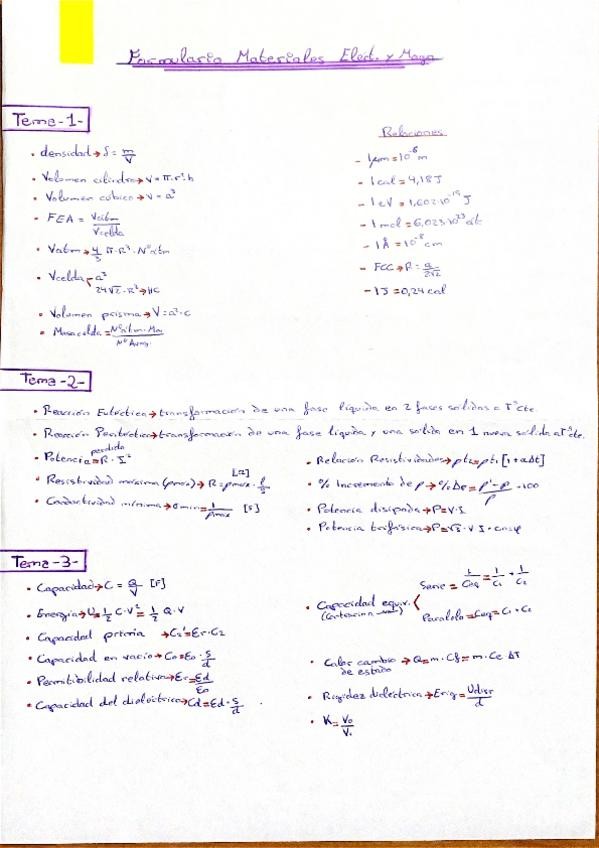 Formulario Materiales Elect. y Magn
Tema-1-
• densidad→δ = m/V
• Volumen cilindro→V=π·r²·h
• Volumen cúbico→V=a³
• FEA = Vátom/Vcelda
• Vatm→4/3 π·R³·Nºátm
• Vcelda a³
24√2·R³→HC
• Volumen prisma→V=a²·c
• Masacelda=Nºátm·Ma/NºAvog.
Relaciones
- 1μm=10⁻⁶m
- 1cal=4,18J
- 1eV=1,602·10⁻¹⁹J
- 1mol=6,023·10²³át
- 1Å=10⁻⁸cm
- FCC→R=a/2√2
- 1J=0,24cal
Tema-2-
• Reacción Eutéctica→transformación de una fase líquida en 2 fases sólidas a Tªcte.
• Reacción Peritéctica→transformación de una fase líquida y una sólida en 1 nueva sólida a Tªcte.
• Potencia perdida=R·I²
• Resistividad máxima (ρmax)→R=ρmax·l/s [Ω]
• Conductividad mínima→σmin=1/ρmax [S]
• Relación Resistividades→ρt₂=ρt₁[1+αΔt]
• % Incremento de ρ→%Δρ=ρ'-ρ/ρ·100
• Potencia disipada→P=V·I
• Potencia trifásica→P=√3·V I·cosφ
Tema-3-
• Capacidad→C=Q/V [F]
• Energía→U=1/2 C·V²=1/2 Q·V
• Capacidad →C₂'=εr·C₂
• Capacidad en vacío→Co=εo·s/d
• Permitibilidad relativa→εr=εd/εo
• Capacidad del dieléctrico→Cd=εd·s/d
• Capacidad equiv.
Serie = 1/Ceq=1/C₁+1/C₂
Paralelo=Ceq=C₁+C₂
• Calor cambio de estado→Q=m·Cf=m·Ce ΔT
• Rigidez dieléctrica→Erig=Udisr/d
• K=Vo/V₁